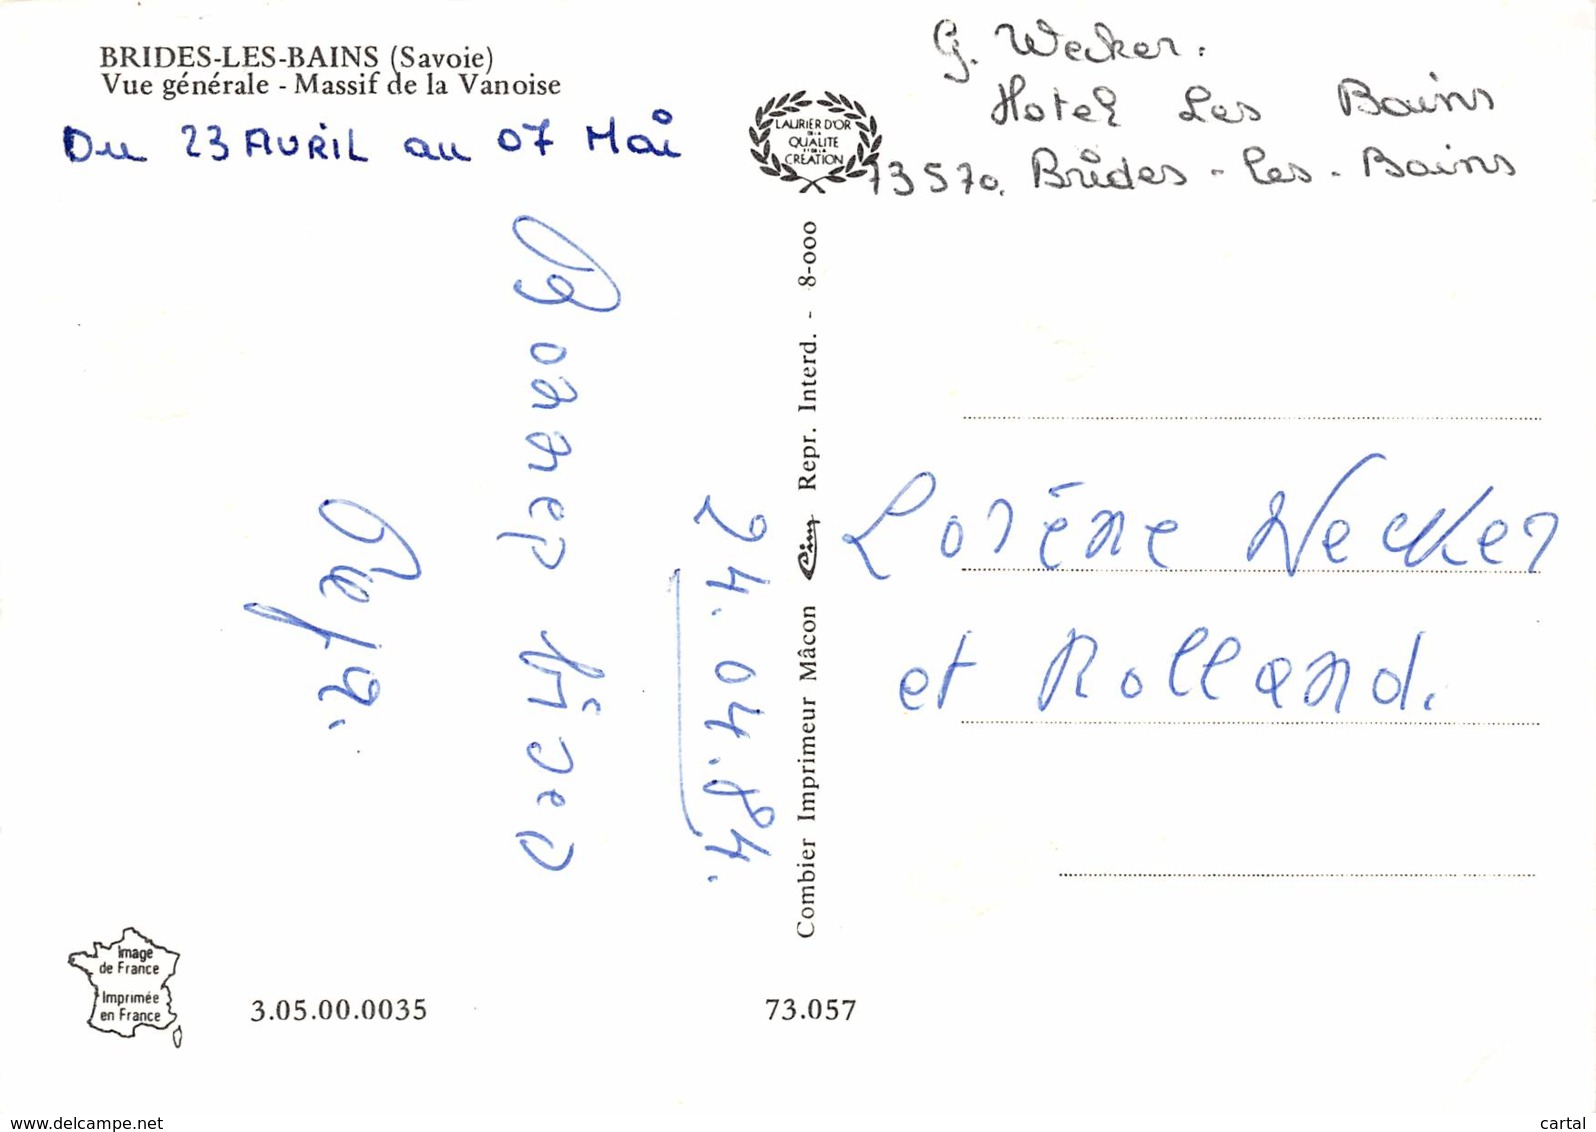 BRIDES-LES-BAINS (Savoie)
Vue générale - Massif de la Vanoise
Du 23 AVRIL au 07 Mai
G. Wecker.
Hotel Les Bains
73570. Brides-les-Bains
LAURIER D'OR
DE LA
QUALITE
ET DE LA
CREATION
24.04.84.
Bonnes bises
Combier Imprimeur Mâcon Cim Repr. Interd. - 8-000
Lorène Wecker
et Rolland.
Image
de France
Imprimée
en France
3.05.00.0035
73.057
www.delcampe.net
cartal